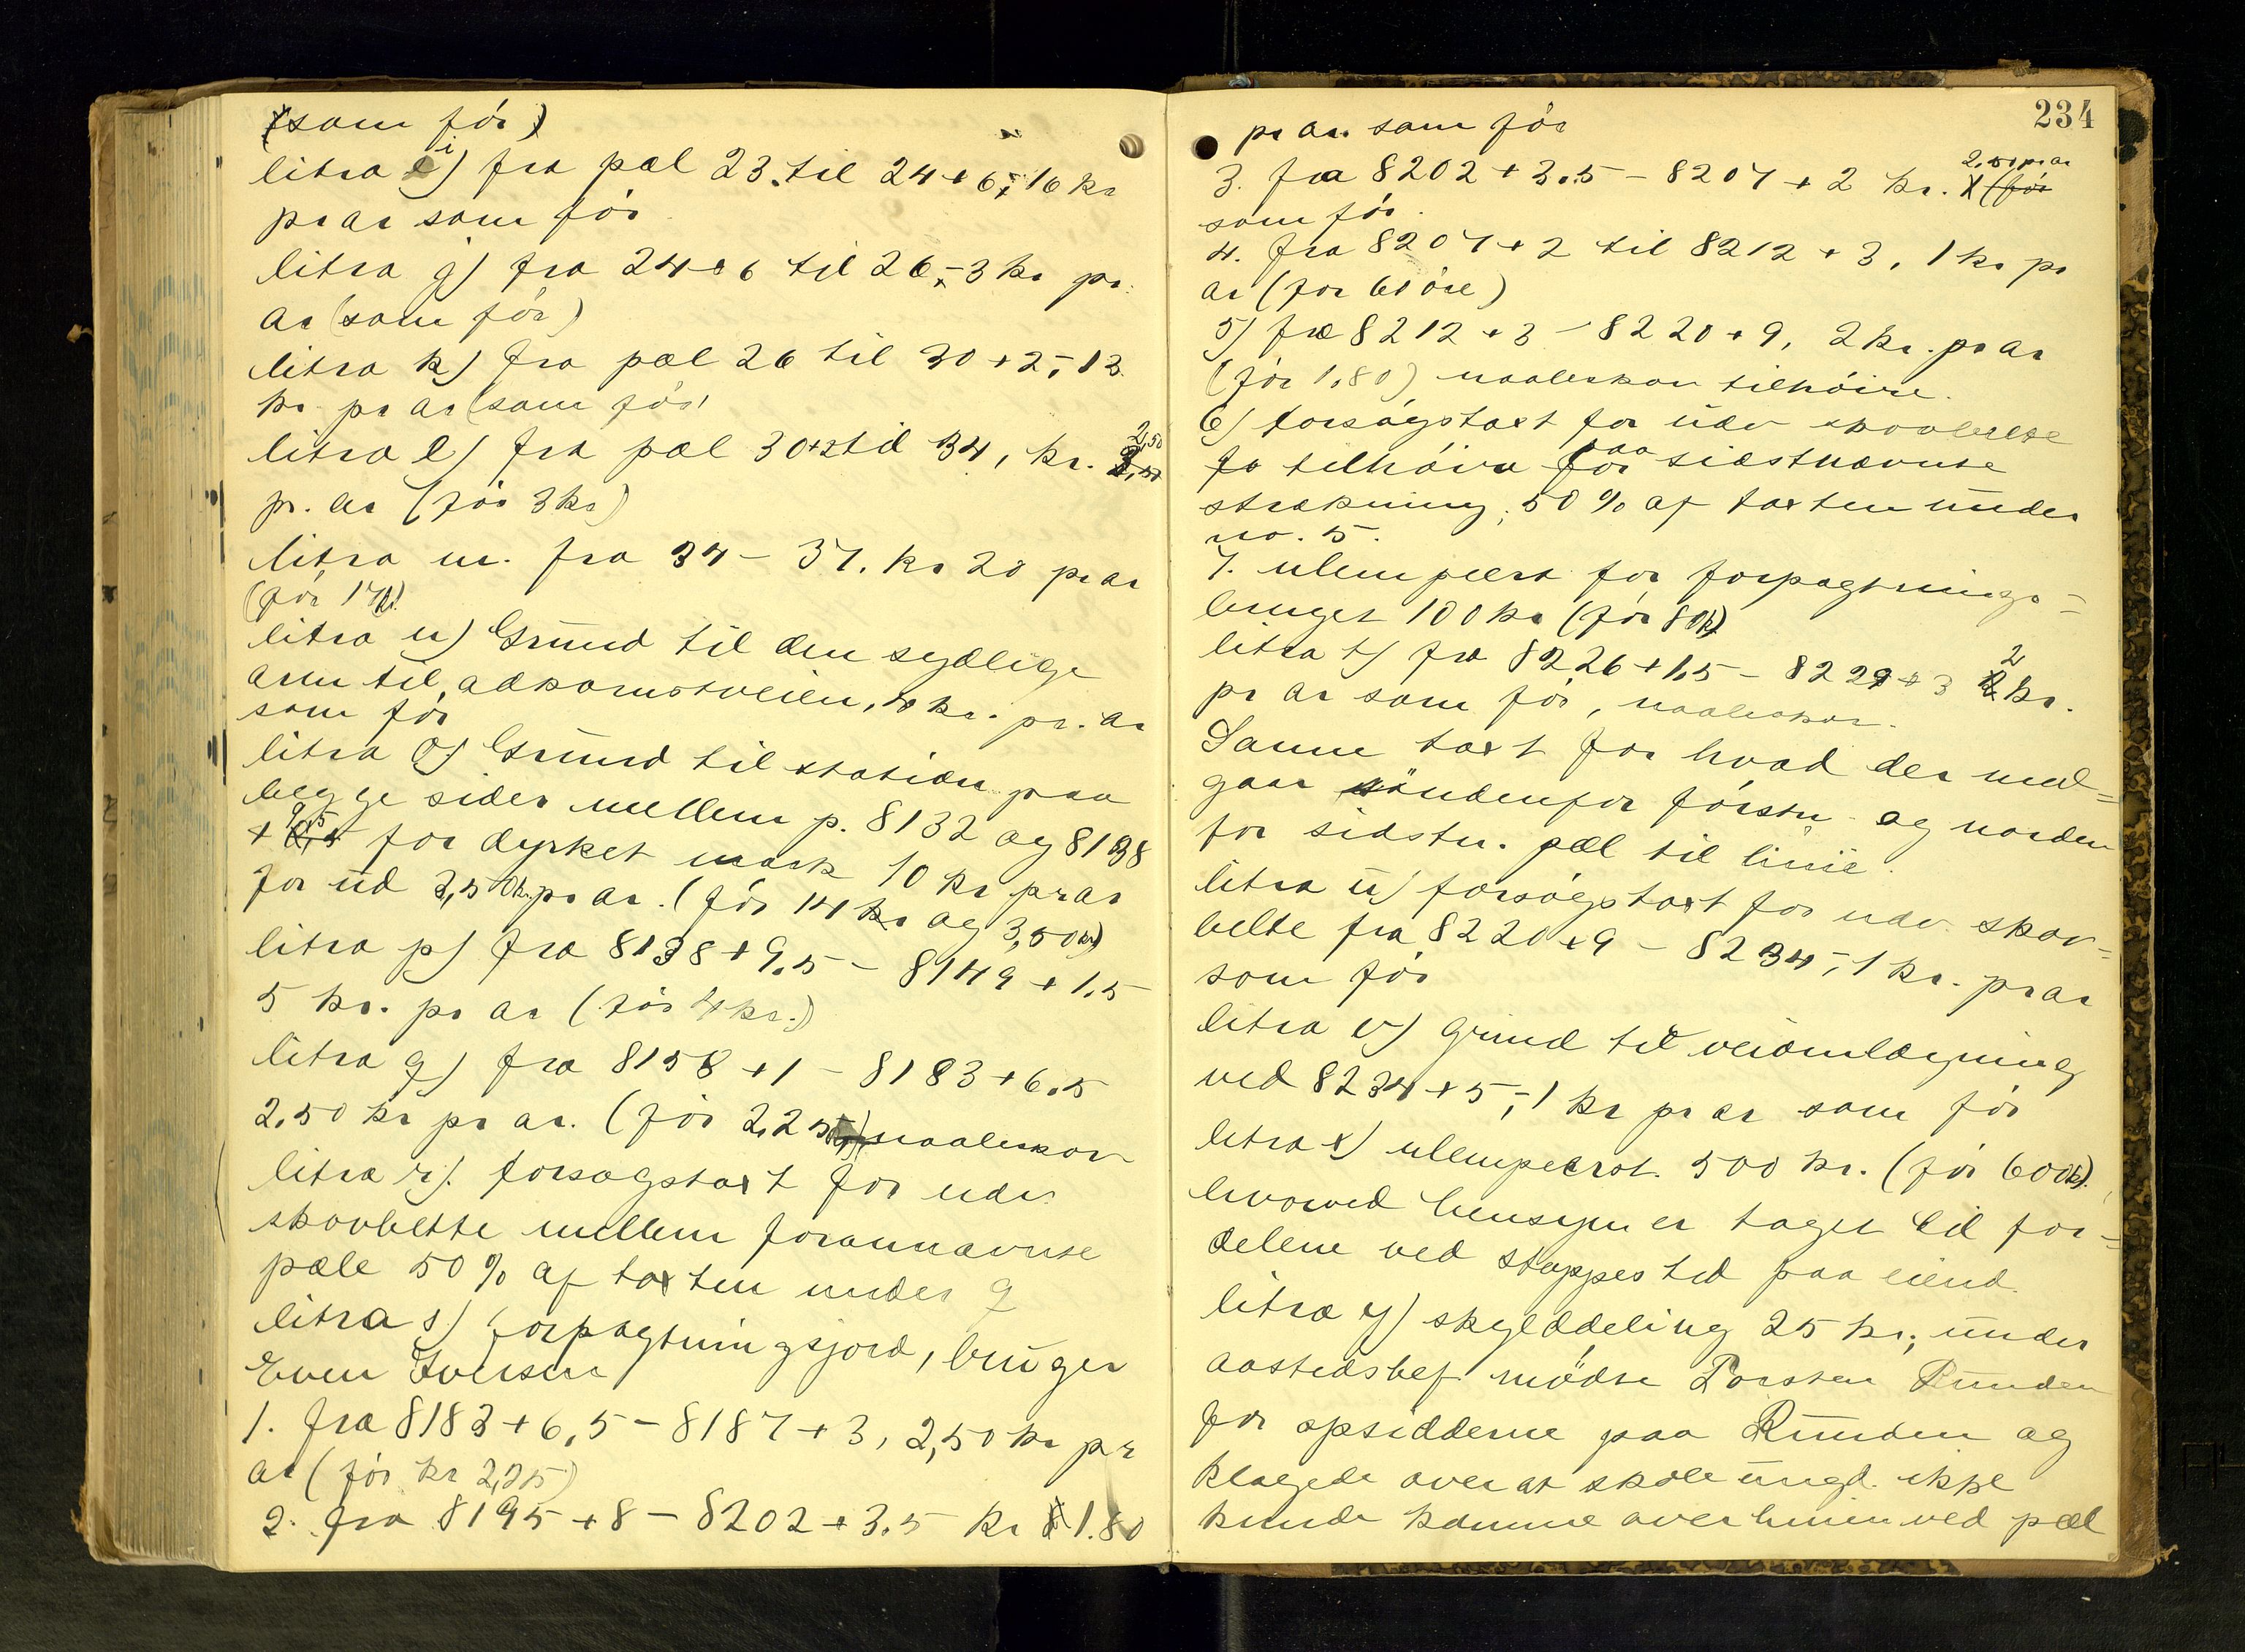 (som før)
litra i) fra pæl 23 til 24 + 6,- 16 kr
pr ar som før
litra j) fra 24 + 6 til 26,- 3 kr pr.
ar (som før)
litra k) fra pæl 26 til 30 + 2,- 13
kr. pr ar (som før)
litra l) fra pæl 30+2 til 34, kr. 2,50
pr. ar (før 3 kr)
litra m. fra 34 - 37. kr 20 pr ar
(før 17 kr)
litra n) Grund til den sydlige
arm til adkomstveien, 10 kr. pr. ar
som før
litra o) Grund til station paa
begge sider mellem p. 8132 og 8138
+ 9,5 for dyrket mark 10 kr pr ar
for ud 2,50 kr. pr ar. (før 14 kr og 3,50 kr)
litra p) fra 8138 + 9.5 - 8149 + 1.5
5 kr. pr ar (før 4 kr.)
litra q) fra 8158 + 1 - 8183 + 6.5
2.50 kr pr ar. (før 2.25 kr) naaleskov
litra r). forsøgstaxt for udv
skovbelte mellem forannævnte
pæle 50 % af taxten under q
litra s) forpagtningsjord, bruger
Even Iversen
1. fra 8183 + 6,5 - 8187 + 3, 2,50 kr pr
ar (før kr 2,25)
2. fra 8195 + 8 - 8202 + 3.5 kr 1.80
234
pr ar. som før
2,50 pr ar
3. fra 8202 + 3.5 - 8207 + 2 kr. (før
som før.
4. fra 8207 + 2 til 8212 + 3, 1 kr pr
ar (før 60 øre)
5) fra 8212 + 3 - 8220 + 9, 2 kr. pr ar
(før 1,80) naaleskov tilhøire.
6) forsøgstaxt for udv skovbelte
tilhøire paa sidstnævnte
strækning, 50 % af taxten under
no. 5.
7. ulemper for forpagtnings-
bruget 100 kr (før 80 kr)
litra t) fra 8226 + 1,5 - 8229 + 3 2 kr.
pr ar som før, naaleskov.
Samme taxt for hvad der med-
gaar søndenfor først og norden
for sidstn. pæl til linie.
litra u) forsøgstaxt for udv. skov-
belte fra 8220 + 9 - 8234,- 1 kr. pr ar
som før
litra v) Grund til veiomlægning
ved 8234 + 5,- 1 kr pr ar som før
litra x) ulempeerst. 500 kr. (før 600 kr).
hvorved hensyn er taget til for-
delene ved stoppested paa eiend.
litra y) skylddeling 25 kr; under
aastedsbef. mødte Torsten Runden
for opsidderne paa Runden og
klagede over at skoleungd. ikke
kunde komme over linien ved pæl